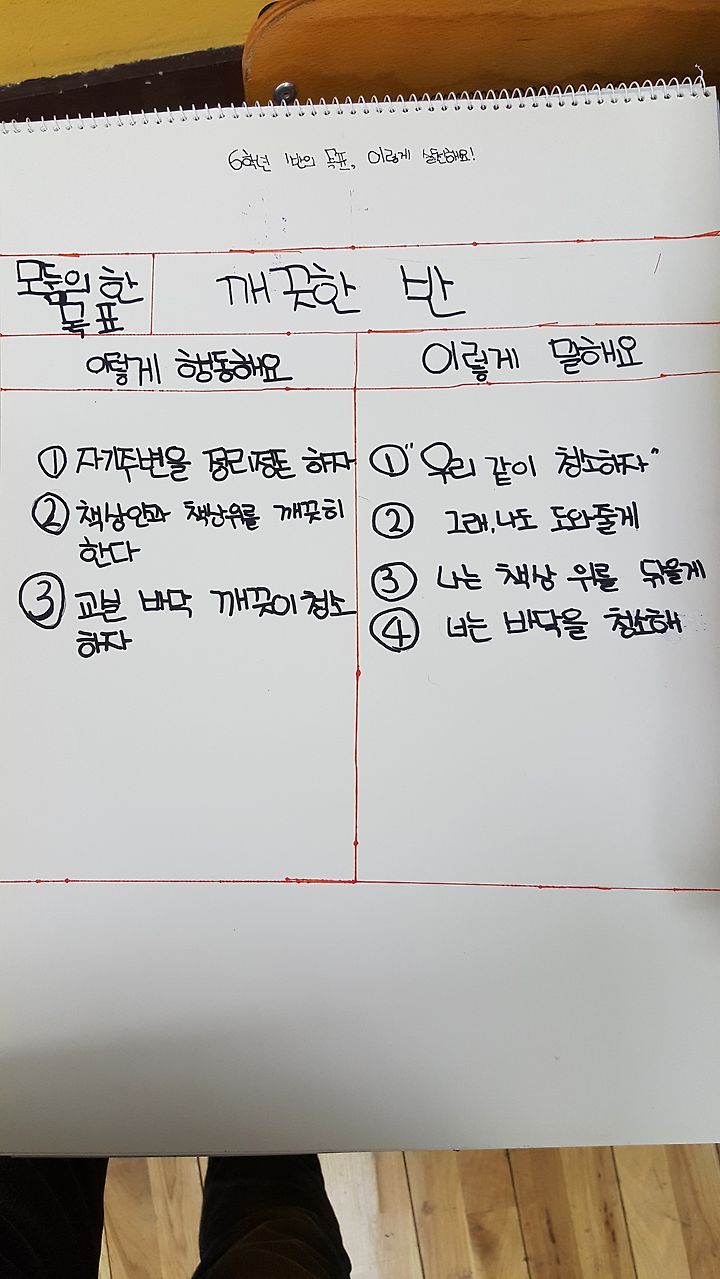 6학년 1반의 목표, 이렇게 실천해요!
모둠의 한
목표
깨끗한 반
이렇게 행동해요
이렇게 말해요
① 자기주변을 정리정돈 하자
② 책상안과 책상위를 깨끗히
한다
③ 교실 바닥 깨끗이 청소
하자
① "우리 같이 청소하자"
② 그래, 나도 도와줄게
③ 나는 책상 위를 닦을게
④ 너는 바닥을 청소해